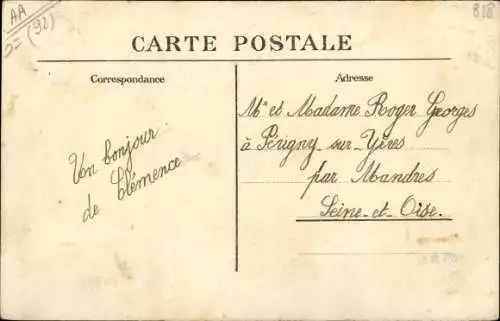 AA
(92)
818
CARTE POSTALE
Correspondance
Adresse
Un bonjour
de Clémence
Mr et Madame Roger Georges
à Périgny-sur-Yères
par Mandres
Seine-et-Oise.